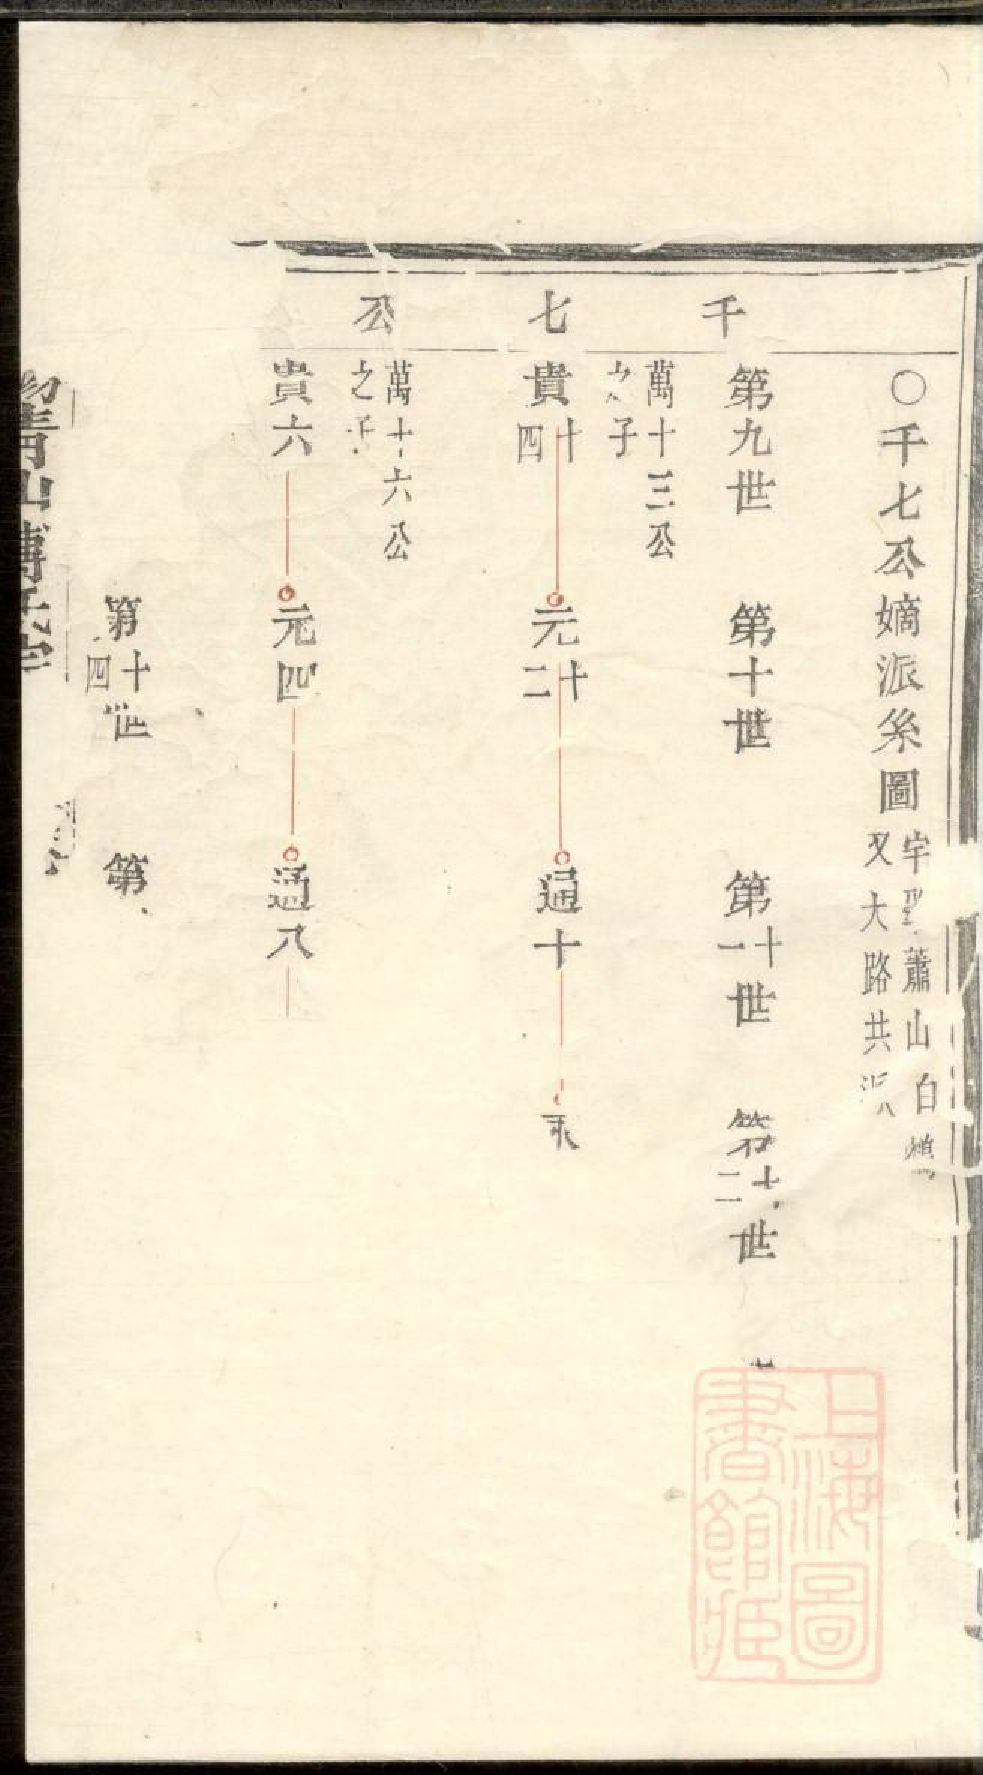 〇千七公嫡派系圖
字聖蕭山白鶴
又大路共派
千
七
公
第九世
第十世
第十一世
第十二世
萬十三公
之子
貴十四
元十二
通十
萬十六公
之子
貴六
元四
通八
第十四世
第
青山傅氏宗
上海圖
書館藏